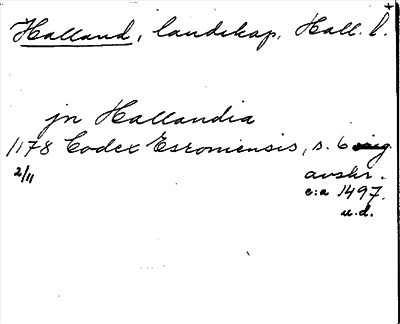 Halland, landskap. Hall. l.
jn Hallandia
1178 Codex Esromensis, s. 6
2/11 avskr.
c:a 1497.
u.d.